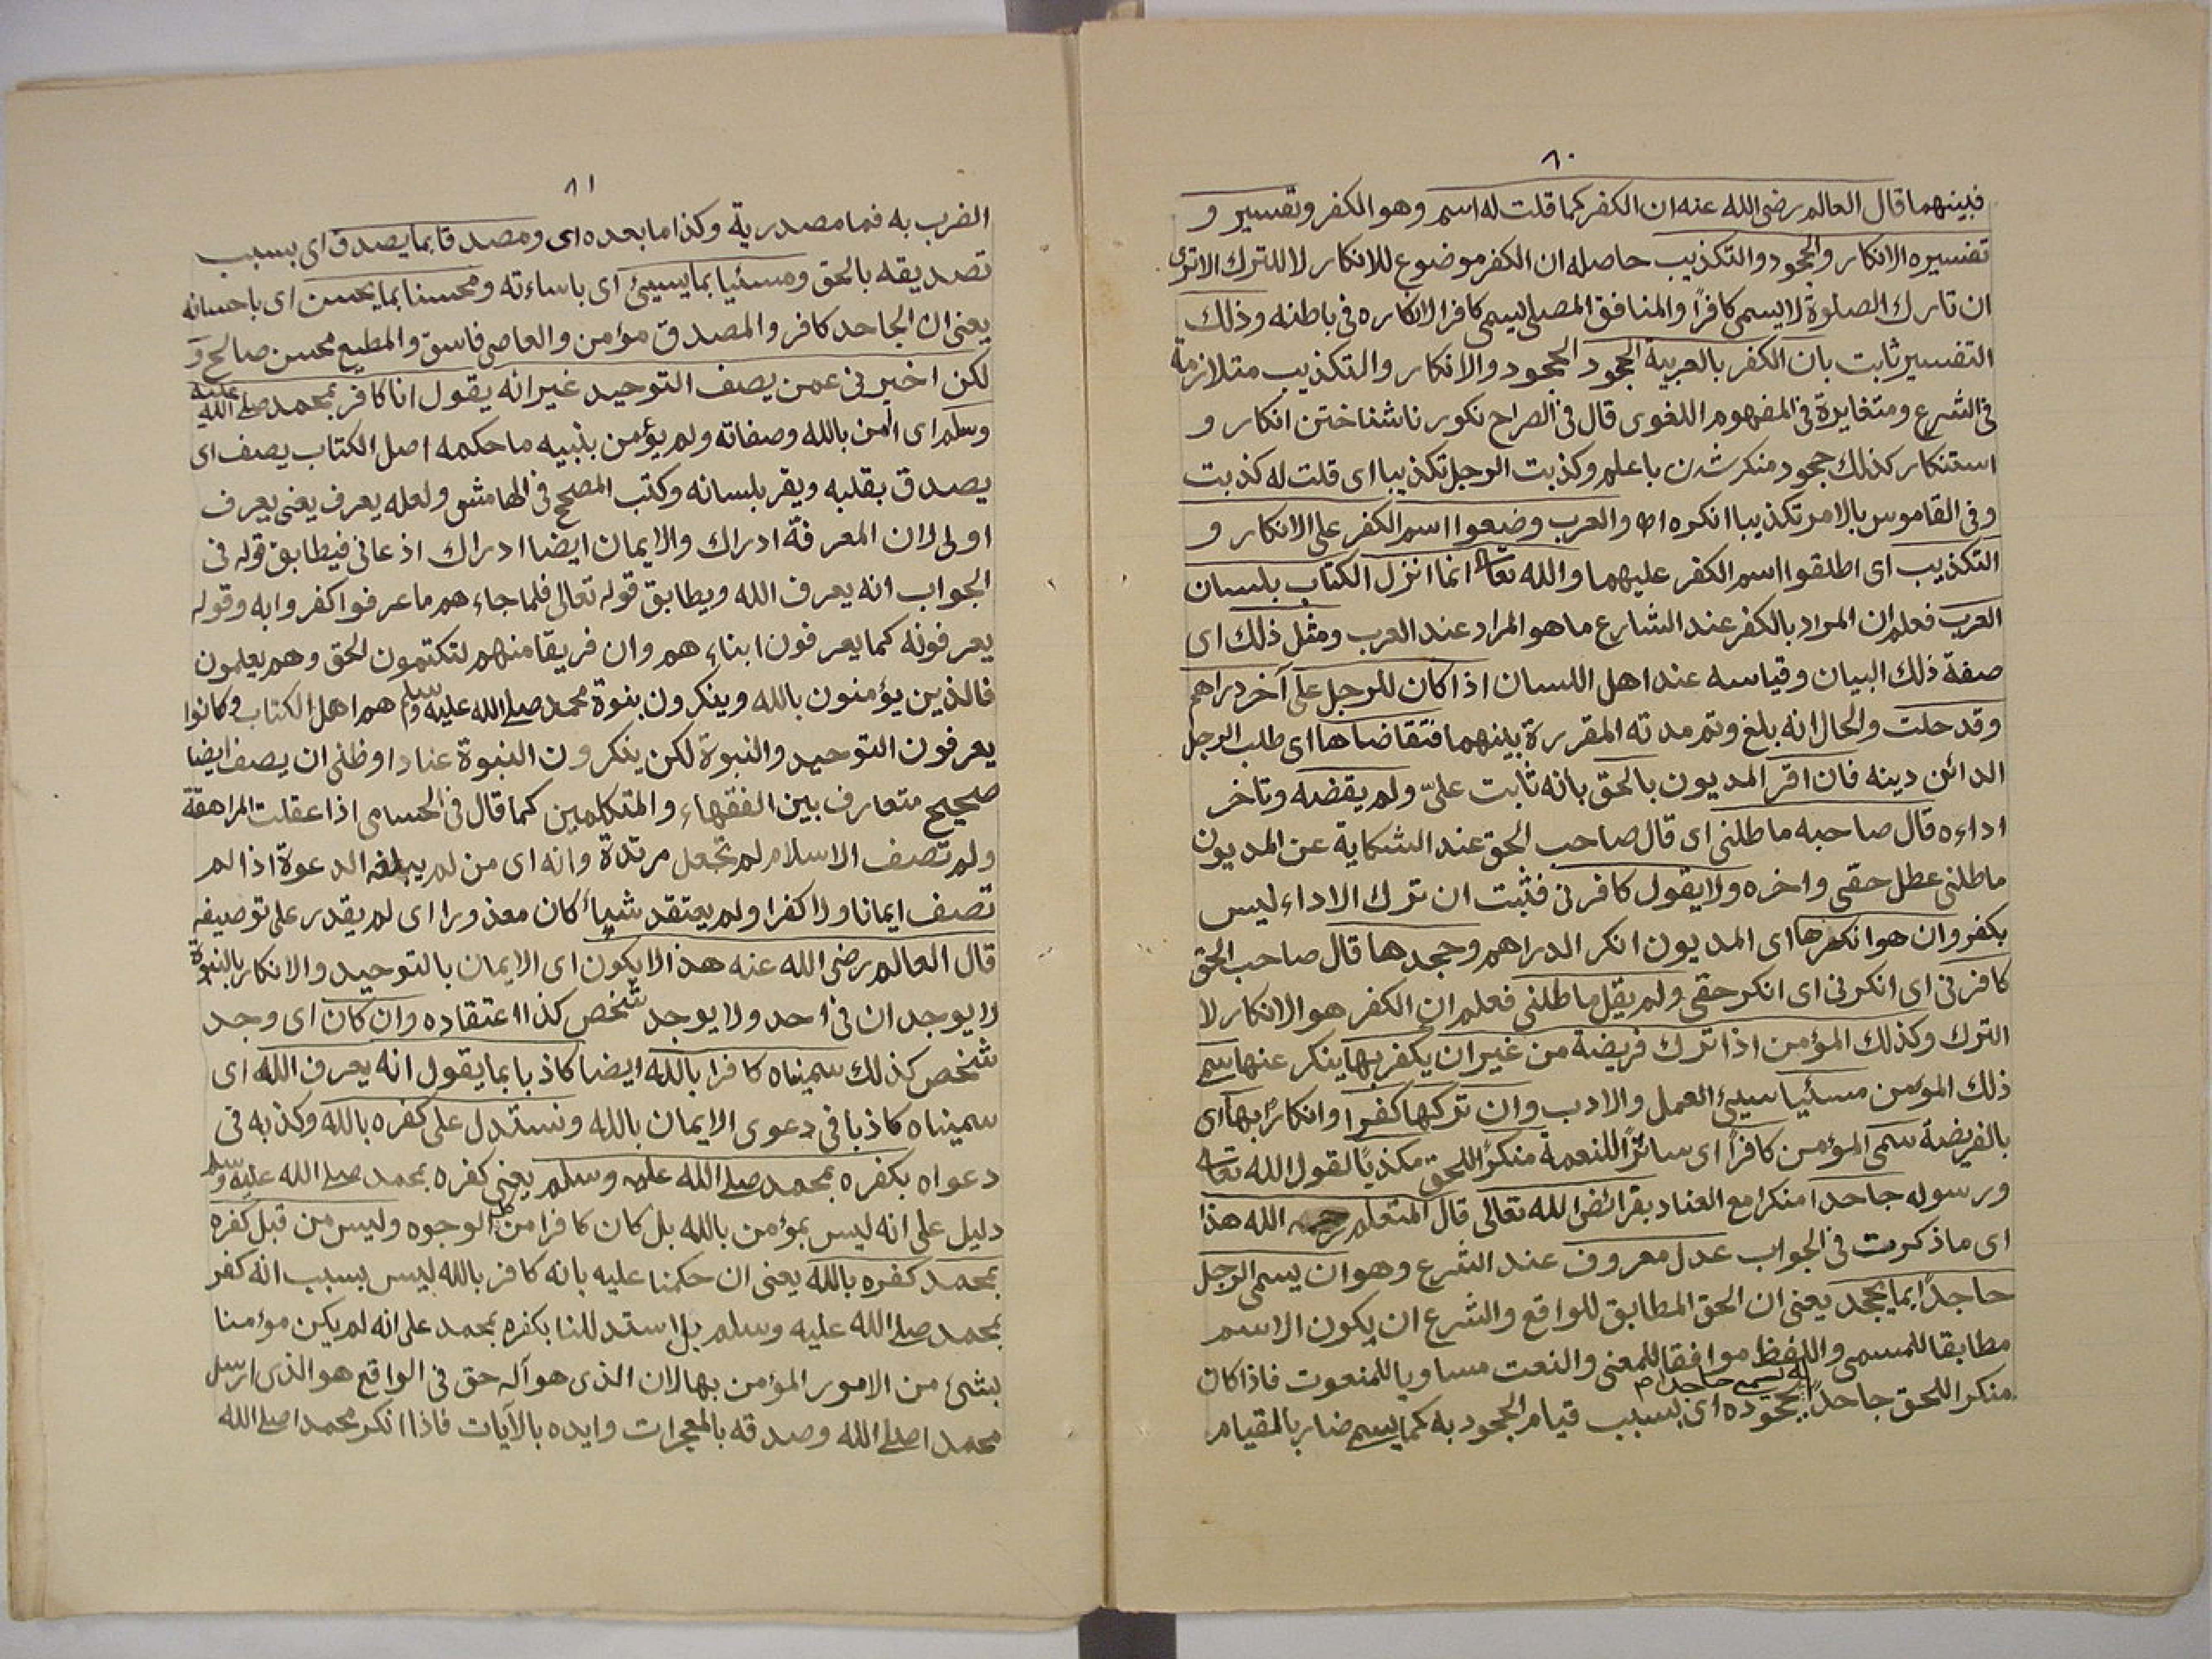 ٨٠
فبينهما قال العالم رضى الله عنه ان الكفر كما قلت له اسم وهو الكفر وتفسير و
تفسيره الانكار والجحود والتكذيب حاصله ان الكفر موضوع للانكار لا للترك الاترى
ان تارك الصلوة لا يسمى كافراً والمنافق المصلى يسمى كافرا لانكاره فى باطنه وذلك
التفسير ثابت بان الكفر بالعربية الجحود الجحود والانكار والتكذيب متلازمة
فى الشرع ومتغايرة فى المفهوم اللغوى قال فى الصراح نكور ناشناختن انكار و
استنكار كذلك جحود منكر شدن با علم وكذبت الرجل تكذيبا اى قلت له كذبت
وفى القاموس بالامر تكذيبا انكره اه والعرب وضعوا اسم الكفر على الانكار و
التكذيب اى اطلقوا اسم الكفر عليهما والله تعالى انما انزل الكتاب بلسان
العرب فعلم ان المراد بالكفر عند الشارع ما هو المراد عند العرب ومثل ذلك اى
صفة ذلك البيان وقياسه عند اهل اللسان اذا كان للرجل على آخر دراهم
وقد حلت والحال انه بلغ وتم مدته المقررة بينهما فتقاضاها اى طلب الرجل
الدائن دينه فان اقر المديون بالحق بانه ثابت علىّ ولم يقضه وتاخر
اداءه قال صاحبه ماطلنى اى قال صاحب الحق عند الشكاية عن المديون
ماطلنى عطل حقى واخره ولا يقول كافرنى فثبت ان ترك الاداء ليس
بكفر وان هو انكرها اى المديون انكر الدراهم وجحدها قال صاحب الحق
كافرنى اى انكرنى اى انكر حقى ولم يقل ماطلنى فعلم ان الكفر هو الانكار لا
الترك وكذلك المؤمن اذا ترك فريضة من غير ان يكفر بها ينكر عنها سمى
ذلك المؤمن مسئيا سيئ العمل والادب وان تركها كفرا وانكارا بها اى
بالفريضة سمى المؤمن كافراً اى ساتراً للنعمة منكراً للحق مكذباً لقول الله تعالى
ورسوله جاحدا منكرا مع العناد بفرائض الله تعالى قال المتعلم رحمه الله هذا
اى ما ذكرت فى الجواب عدل معروف عند الشرع وهو ان يسمى الرجل
جاحداً بما يجحد يعنى ان الحق المطابق للواقع والشرع ان يكون الاسم
مطابقا للمسمى واللفظ موافقا للمعنى والنعت مساويا للمنعوت فاذا كان
منكرا للحق جاحداً بجحوده اى بسبب قيام الجحود به كما يسمى ضارباً لقيام
٨١
الضرب به فما مصدرية وكذا ما بعده اى ومصدقا بما يصدق اى بسبب
تصديقه بالحق ومسئيا بما يسيئ اى باساءته ومحسنا بما يحسن اى باحسانه
يعنى ان الجاحد كافر والمصدق مؤمن والعاصى فاسق والمطيع محسن صالح و
لكن اخبرنى عمن يصف التوحيد غير انه يقول انا كافر بمحمد صلى الله عليه
وسلم اى آمن بالله وصفاته ولم يؤمن بنبيه ما حكمه اصل الكتاب يصف اى
يصدق بقلبه ويقر بلسانه وكتب المصحح فى الهامش ولعله يعرف يعنى يعرف
اولى لان المعرفة ادراك والايمان ايضا ادراك اذعانى فيطابق قوله فى
الجواب انه يعرف الله ويطابق قوله تعالى فلما جاءهم ما عرفوا كفروا به وقوله
يعرفونه كما يعرفون ابناءهم وان فريقا منهم لتكتمون الحق وهم يعلمون
فالذين يؤمنون بالله وينكرون بنوة محمد صلى الله عليه وسلم هم اهل الكتاب وكانوا
يعرفون التوحيد والنبوة لكن ينكرون النبوة عنادا وظنى ان يصف ايضا
صحيح متعارف بين الفقهاء والمتكلمين كما قال فى الحسامى اذا عقلت المراهقة
ولم تصف الاسلام لم تجعل مرتدة وانه اى من لم يبلغه الدعوة اذا لم
تصف ايمانا ولا كفرا ولم يعتقد شيأ كان معذورا اى لم يقدر على توصيفه
قال العالم رضى الله عنه هذا لا يكون اى الايمان بالتوحيد والانكار بالنبوة
لا يوجدان فى احد ولا يوجد شخص كذا اعتقاده وان كان اى وجد
شخص كذلك سميناه كافرا بالله ايضا كاذبا بما يقول انه يعرف الله اى
سميناه كاذبا فى دعوى الايمان بالله ونستدل على كفره بالله وكذبه فى
دعواه بكفره بمحمد صلى الله عليه وسلم يعنى كفره بمحمد صلى الله عليه وسلم
دليل على انه ليس بمؤمن بالله بل كان كافرا من كل الوجوه وليس من قبل كفره
بمحمد كفره بالله يعنى ان حكمنا عليه بانه كافر بالله ليس بسبب انه كفر
بمحمد صلى الله عليه وسلم بل استدللنا بكفره بمحمد على انه لم يكن مؤمنا
بشئ من الامور المؤمن بها لان الذى هو آله حق فى الواقع هو الذى ارسل
محمدا صلى الله وصدقه بالمعجزات وايده بالآيات فاذا انكر محمدا صلى الله